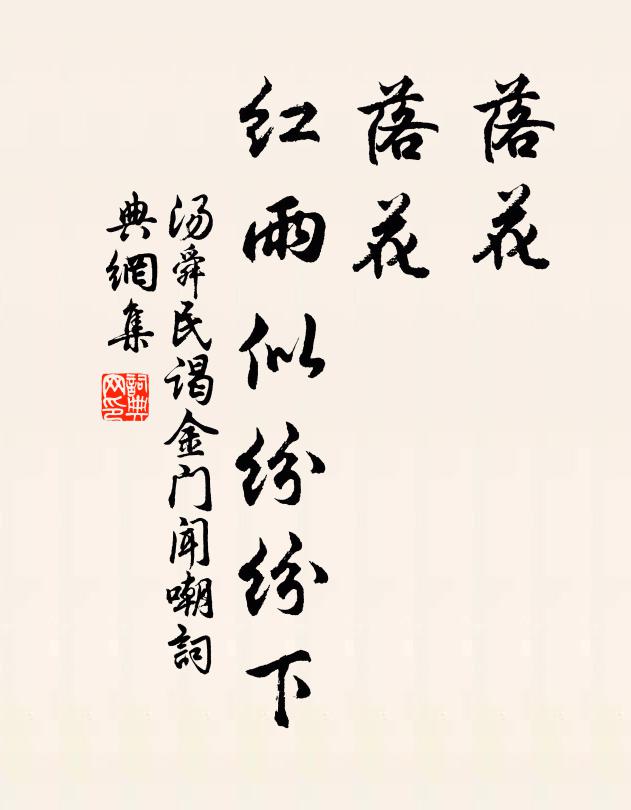 落花
落花
红雨似纷纷下
汤舜民谒金门闻嘲詞
典網集
詞典网印